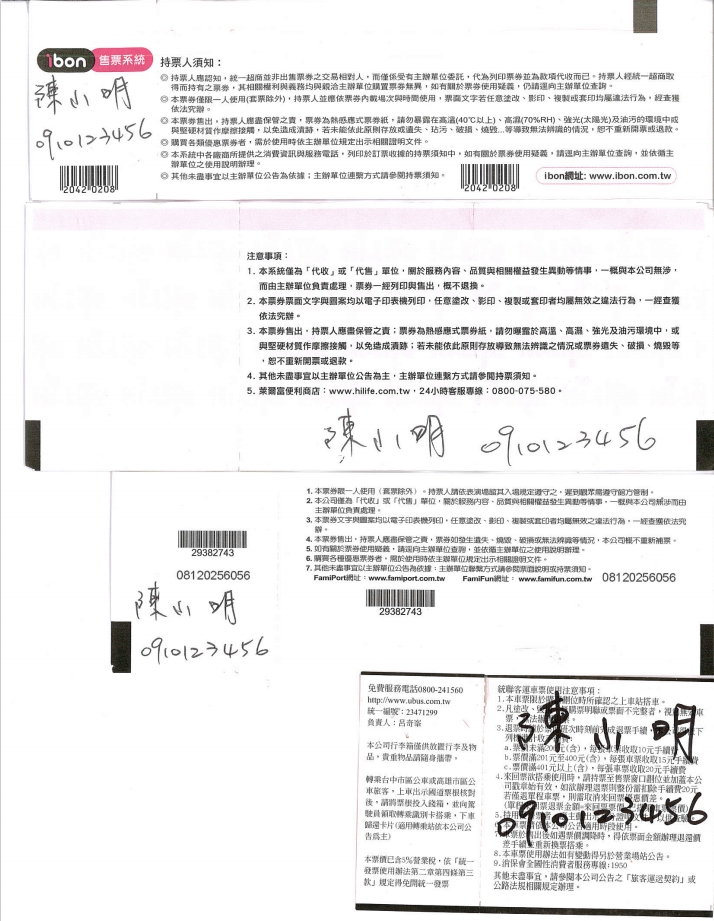 ibon 售票系統
持票人須知：
◎ 持票人應認知，統一超商並非出售票券之交易相對人，而僅係受有主辦單位委託，代為列印票券並為款項代收而已。持票人經統一超商取
得而持有之票券，其相關權利與義務均與親洽主辦單位購置票券無異，如有關於票券使用疑義，仍請逕向主辦單位查詢。
◎ 本票券僅限一人使用(套票除外)，持票人並應依票券內載場次與時間使用，票面文字若任意塗改、影印、複製或套印均屬違法行為，經查獲
依法究辦。
◎ 本票券售出，持票人應盡保管之責，票券為熱感應式票券紙，請勿暴露在高溫(40℃以上)、高濕(70%RH)、強光(太陽光)及油污的環境中或
與堅硬材質作摩擦接觸，以免造成漬跡，若未能依此原則存放或遺失、玷污、破損、燒毀...等導致無法辨識的情況，恕不重新開票或退款。
◎ 購買各類優惠票券者，需於使用時依主辦單位規定出示相關證明文件。
◎ 本系統中各廠商所提供之消費資訊與服務電話，列印於訂票收據的持票須知中，如有關於票券使用疑義，請逕向主辦單位查詢，並依循主
辦單位之使用說明辦理。
◎ 其他未盡事宜以主辦單位公告為依據；主辦單位連繫方式請參閱持票須知。
ibon網址: www.ibon.com.tw
陳小明
0910123456
2042 0208
2042 0208
注意事項：
1. 本系統僅為「代收」或「代售」單位，關於服務內容、品質與相關權益發生異動等情事，一概與本公司無涉，
而由主辦單位負責處理，票券一經列印與售出，概不退換。
2. 本票券票面文字與圖案均以電子印表機列印，任意塗改、影印、複製或套印者均屬無效之違法行為，一經查獲
依法究辦。
3. 本票券售出，持票人應盡保管之責；票券為熱感應式票券紙，請勿曝露於高溫、高濕、強光及油污環境中，或
與堅硬材質作摩擦接觸，以免造成漬跡；若未能依此原則存放導致無法辨識之情況或票券遺失、破損、燒毀等
，恕不重新開票或退款。
4. 其他未盡事宜以主辦單位公告為主，主辦單位連繫方式請參閱持票須知。
5. 萊爾富便利商店：www.hilife.com.tw，24小時客服專線：0800-075-580。
陳小明 0910123456
1. 本票券限一人使用（套票除外）。持票人請依表演場館其入場規定遵守之，遲到觀眾需遵守館方管制。
2. 本公司僅為「代收」或「代售」單位，關於服務內容、品質與相關權益發生異動等情事，一概與本公司無涉而由
主辦單位負責處理。
3. 本票券文字與圖案均以電子印表機列印，任意塗改、影印、複製或套印者均屬無效之違法行為，一經查獲依法究
辦。
4. 本票券售出，持票人應盡保管之責，票券如發生遺失、燒毀、破損或無法辨識等情況，本公司概不重新補票。
5. 如有關於票券使用疑義，請逕向主辦單位查詢，並依循主辦單位之使用說明辦理。
6. 購買各種優惠票券者，需於使用時依主辦單位規定出示相關證明文件。
7. 其他未盡事宜以主辦單位公告為依據；主辦單位聯繫方式請參閱票面說明或持票須知。
FamiPort網址：www.famiport.com.tw FamiFun網址：www.famifun.com.tw
08120256056
29382743
08120256056
29382743
陳小明
0910123456
免費服務電話0800-241560
http://www.ubus.com.tw
統一編號：23471299
負責人：呂奇峯
本公司行李箱僅供放置行李及物
品，貴重物品請隨身攜帶。
轉乘台中市區公車或高雄市區公
車旅客，上車出示國道票根核對
後，請將票根投入錢箱，並向駕
駛員領取轉乘識別卡搭乘，下車
歸還卡片(適用轉乘站依本公司公
告為主)
本票價已含5%營業稅，依「統一
發票使用辦法第二章第四條第三
款」規定得免開統一發票
統聯客運車票使用注意事項：
1.本車票限於
劃位時所確認之上車站搭車。
2.凡塗改、
3.退票
a.票價未滿200元(含)，每張車票收取10元手續費
b.票價滿201元至400元(含)，每張車票收取15元手續費
c.票價滿401元以上(含)，每張車票收取20元手續費
4.來回票欲搭乘使用時，請持票至售票窗口劃位並加蓋本公
司戳章始有效，如欲辦理退票則整份需扣除手續費20元，
若僅退單程車票，則需取消來回票優惠價差。
8.本車票使用辦法如有變動得另於營業場站公告。
9.消保會全國性消費者服務專線:1950
其他未盡事宜，請參閱本公司公告之「旅客運送契約」或
公路法規相關規定辦理。
陳小明
0910123456